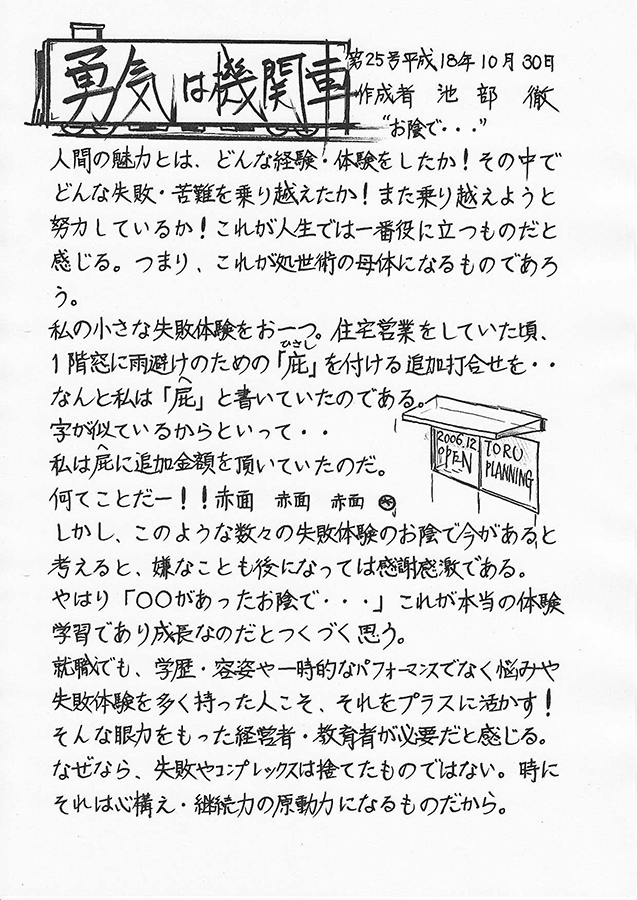 勇気は機関車
第25号平成18年10月30日
作成者 池部 徹
“お陰で・・・”
人間の魅力とは、どんな経験・体験をしたか！その中で
どんな失敗・苦難を乗り越えたか！また乗り越えようと
努力しているか！これが人生では一番役に立つものだと
感じる。つまり、これが処世術の母体になるものであろ
う。
私の小さな失敗体験をお一つ。住宅営業をしていた頃、
ひさし
1階窓に雨避けのための「庇」を付ける追加打合せを・・
へ
なんと私は「屁」と書いていたのである。
字が似ているからといって・・
へ
私は屁に追加金額を頂いていたのだ。
何てことだー！！赤面 赤面 赤面
2006.12
OPEN
TORU
PLANNING
しかし、このような数々の失敗体験のお陰で今があると
考えると、嫌なことも後になっては感謝感激である。
やはり「○○があったお陰で・・・」これが本当の体験
学習であり成長なのだとつくづく思う。
就職でも、学歴・容姿や一時的なパフォーマンスでなく悩みや
失敗体験を多く持った人こそ、それをプラスに活かす！
そんな眼力をもった経営者・教育者が必要だと感じる。
なぜなら、失敗やコンプレックスは捨てたものではない。時に
それは心構え・継続力の原動力になるものだから。